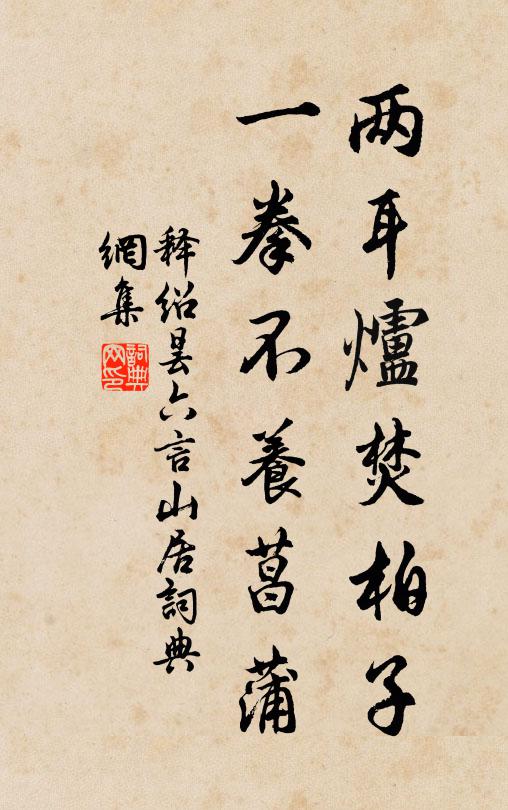 两耳爐焚柏子
一拳不養菖蒲
释绍昙六言山居詞典
網集
詞典
网印